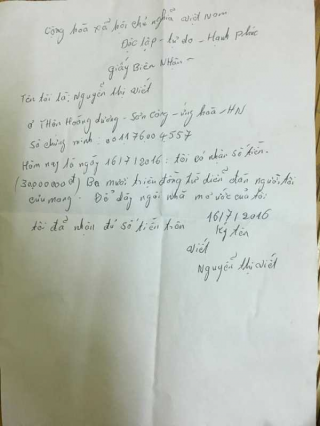 Cộng hòa xã hội chủ nghĩa việt Nam
Độc lập - tự do - Hạnh phúc
Giấy Biên Nhân
Tên tôi là, Nguyễn thị viết
ở Thôn Hoàng dương - Sơn Công - ứng hoà - HN
Số chứng minh. 001176004557
Hôm nay là ngày 16/7/2016. tôi có nhân số tiền.
(30000000đ) Ba mươi triệu đồng từ diễn đàn người tôi
cưu mang. Để xây ngôi nhà mơ ước của tôi
tôi đã nhân đủ số tiền trên
16/7/2016
Ký tên
viết
Nguyễn thị viết